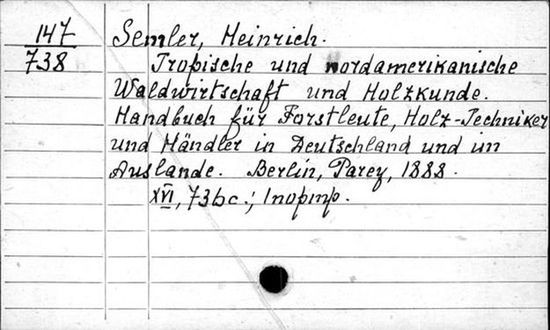 147
738
Semler, Heinrich.
Tropische und nordamerikanische
Waldwirtschaft und Holzkunde.
Handbuch für Forstleute, Holz-Techniker
und Händler in Deutschland und im
Auslande. Berlin, Parey, 1888.
XVI, 736 c.; 1 портр.